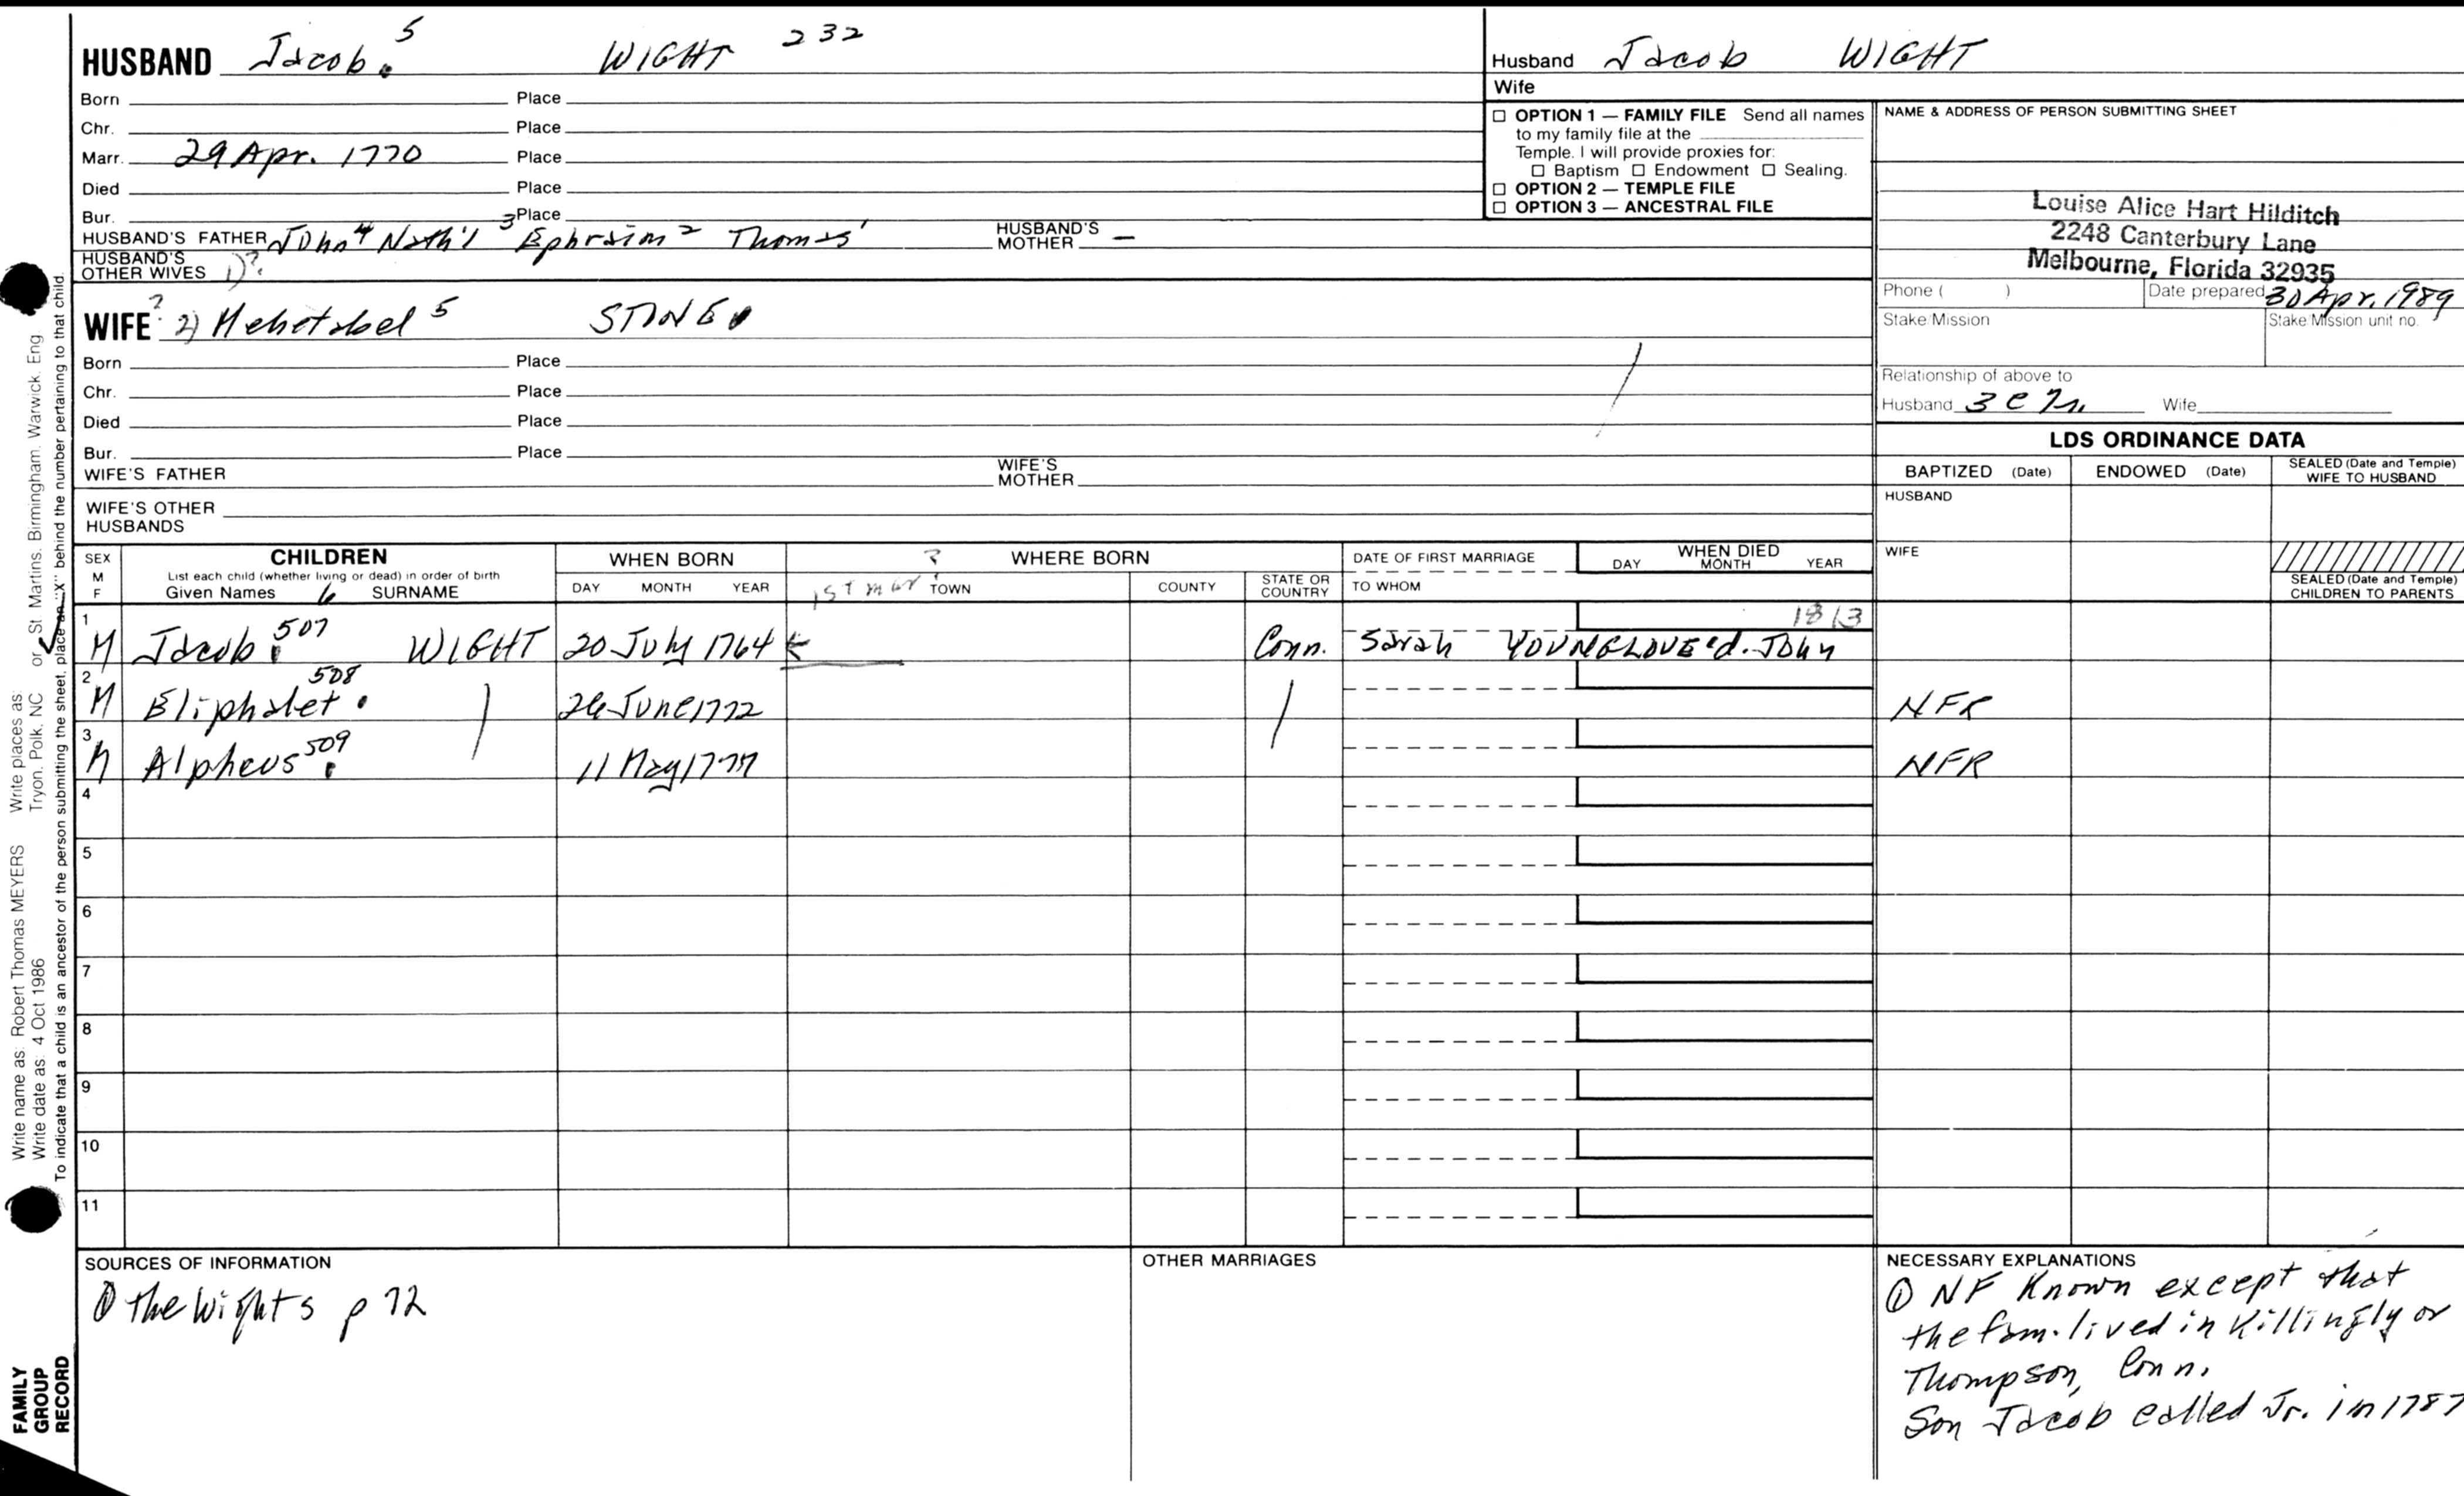 HUSBAND Jacob. 5 WIGHT 232
Born Place
Chr. Place
Marr. 29 Apr. 1770 Place
Died Place
Bur. Place
HUSBAND'S FATHER John 4 Nath'l 3 Ephraim 2 Thomas 1 HUSBAND'S MOTHER —
HUSBAND'S OTHER WIVES 1)?
WIFE ? 2) Mehetabel 5 STONE
Born Place
Chr. Place
Died Place
Bur. Place
WIFE'S FATHER WIFE'S MOTHER
WIFE'S OTHER HUSBANDS
Husband Jacob WIGHT
Wife
☐ OPTION 1 — FAMILY FILE Send all names
to my family file at the
Temple. I will provide proxies for:
☐ Baptism ☐ Endowment ☐ Sealing.
☐ OPTION 2 — TEMPLE FILE
☐ OPTION 3 — ANCESTRAL FILE
NAME & ADDRESS OF PERSON SUBMITTING SHEET
Louise Alice Hart Hilditch
2248 Canterbury Lane
Melbourne, Florida 32935
Phone ( ) Date prepared 30 Apr. 1989
Stake/Mission Stake/Mission unit no.
Relationship of above to
Husband 3 C 7r. Wife
LDS ORDINANCE DATA
BAPTIZED (Date) ENDOWED (Date) SEALED (Date and Temple) WIFE TO HUSBAND
HUSBAND
WIFE
SEALED (Date and Temple)
CHILDREN TO PARENTS
SEX M F CHILDREN
List each child (whether living or dead) in order of birth
Given Names 6 SURNAME
WHEN BORN
DAY MONTH YEAR
? WHERE BORN
1st mar TOWN COUNTY STATE OR COUNTRY
DATE OF FIRST MARRIAGE
TO WHOM
WHEN DIED
DAY MONTH YEAR
1813
1 M Jacob. 507 WIGHT 20 July 1764 Conn. Sarah YOUNGLOVE d. John
2 M Eliphalet. 508 26 June 1772 NFR
3 M Alpheus 509 11 May 1777 NFR
4
5
6
7
8
9
10
11
SOURCES OF INFORMATION
① The Wights p 72
OTHER MARRIAGES
NECESSARY EXPLANATIONS
① NF Known except that
the fam. lived in Killingly or
Thompson, Conn.
Son Jacob called Jr. in 1787
Write name as: Robert Thomas MEYERS Write places as:
Write date as: 4 Oct 1986 Tryon, Polk, NC or St. Martins, Birmingham, Warwick, Eng
To indicate that a child is an ancestor of the person submitting the sheet, place an "X" behind the number pertaining to that child.
FAMILY
GROUP
RECORD